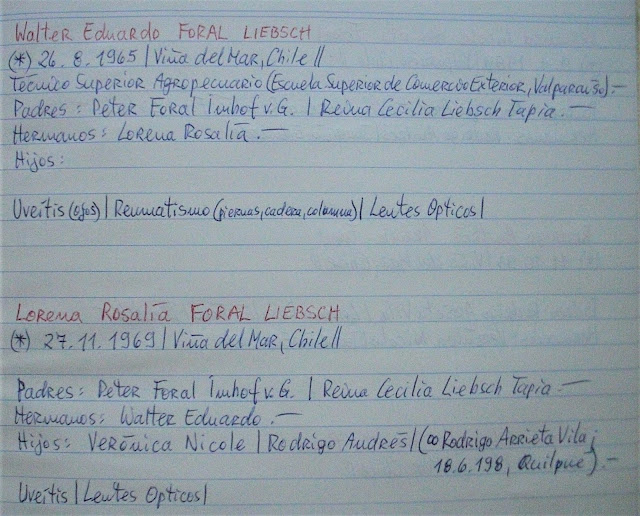 Walter Eduardo FORAL LIEBSCH
(*) 26.8.1965 | Viña del Mar, Chile ||
Técnico Superior Agropecuario (Escuela Superior de Comercio Exterior, Valparaíso).—
Padres: Peter Foral Imhof v.G. | Reina Cecilia Liebsch Tapia.—
Hermanos: Lorena Rosalía.—
Hijos:
Uveítis (ojos) | Reumatismo (piernas, cadera, columna) | Lentes Opticos |
Lorena Rosalía FORAL LIEBSCH
(*) 27.11.1969 | Viña del Mar, Chile ||
Padres: Peter Foral Imhof v.G. | Reina Cecilia Liebsch Tapia.—
Hermanos: Walter Eduardo.—
Hijos: Verónica Nicole | Rodrigo Andrés | (∞ Rodrigo Arrieta Vila;
18.6.198, Quilpué).—
Uveítis | Lentes Opticos |